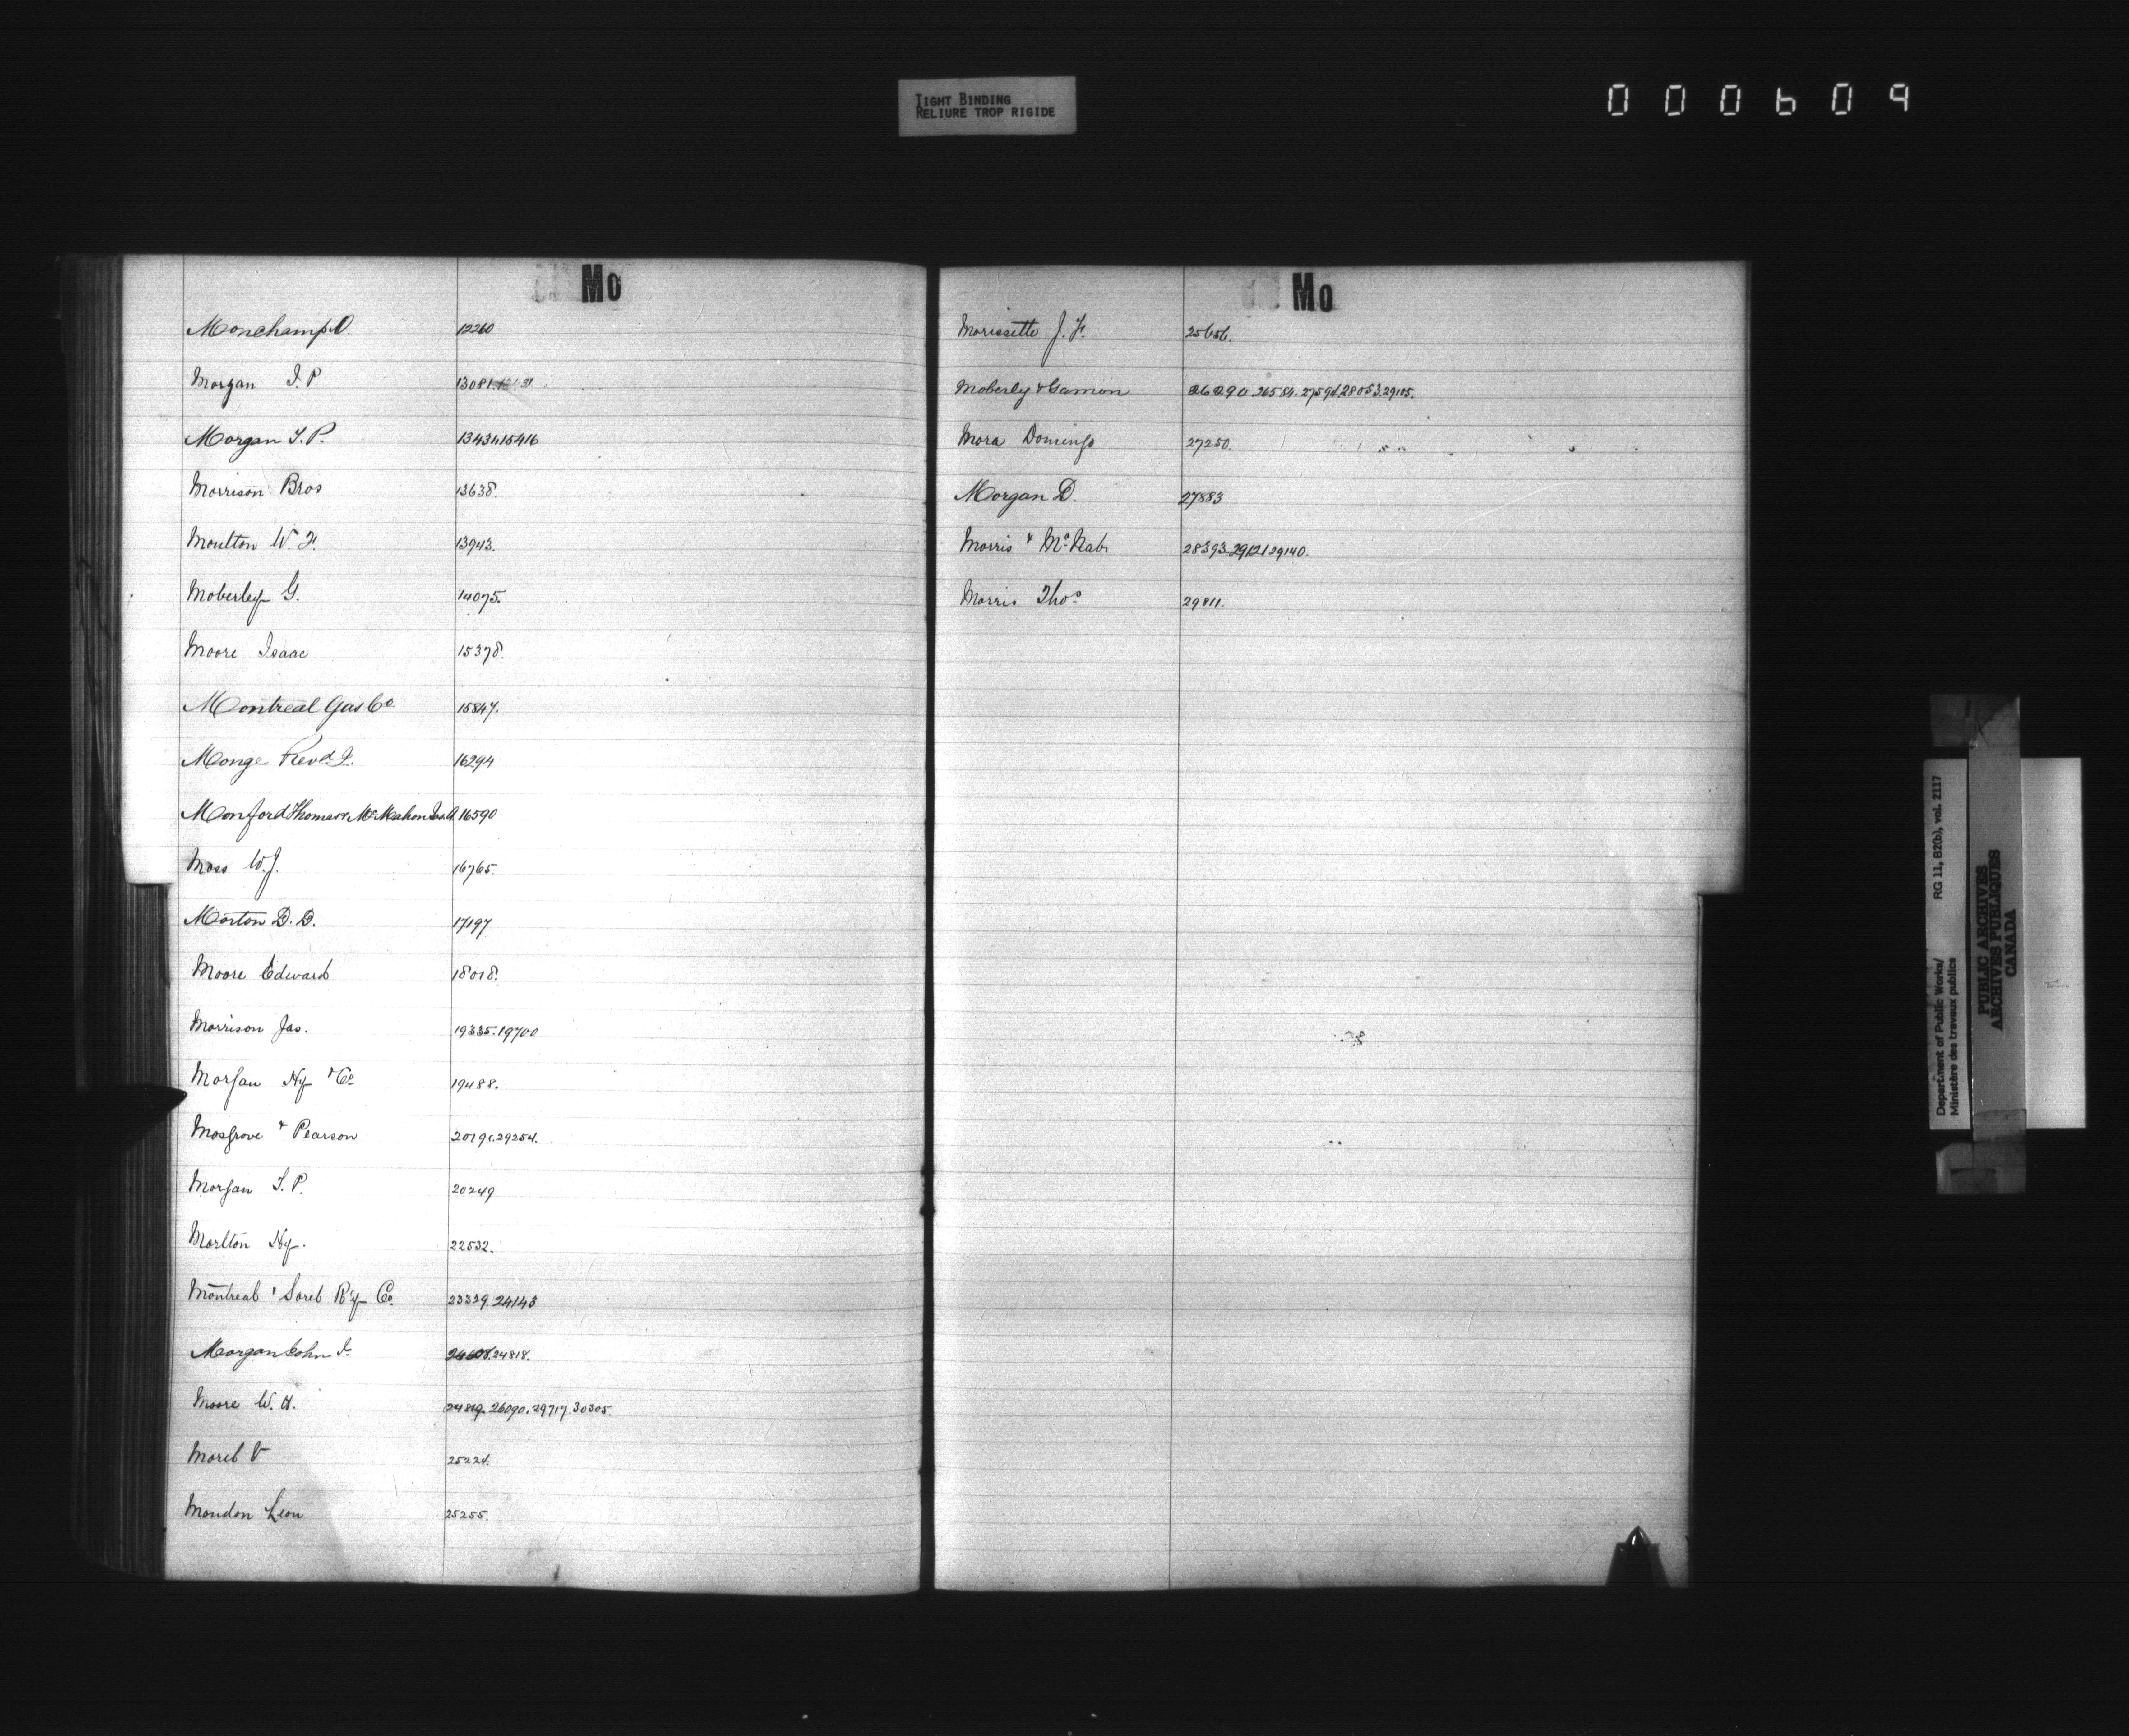 TIGHT BINDING
RELIURE TROP RIGIDE
000609
Mo
Monchamp O. 12260
Morgan I. P 13081.
Morgan I. P. 13431.15416
Morrison Bros 13638.
Moulton W. F. 13943.
Moberley G. 14075.
Moore Isaac 15378.
Montreal Gas Co 15847.
Monge Revd. J. 16294
Monford Thomas & McMahon 16590
Moss W. J. 16765.
Morton D. D. 17197
Moore Edward 18018.
Morrison Jas. 19335.19700
Morgan Hy & Co 19488.
Mosgrove & Pearson 29254.
Morgan I. P. 20249
Morlton Hy. 22532.
Montreal & Sorel R'y Co. 23339.24143
Morgan John I. 24608.24818.
Moore W. H. 24819.26090.29717.30305.
Morel V 25224.
Mondon Leon 25255.
Mo
Morissette J. F. 25656.
Moberly & Gamon 26290.26584.27594.28053.29105.
Mora Domingo 27250.
Morgan D. 27883
Morris & McNab 28393.29121.29140.
Morris Thos 29811.
Department of Public Works/ RG 11, B2(b), vol. 2117
Ministère des travaux publics
PUBLIC ARCHIVES
ARCHIVES PUBLIQUES
CANADA